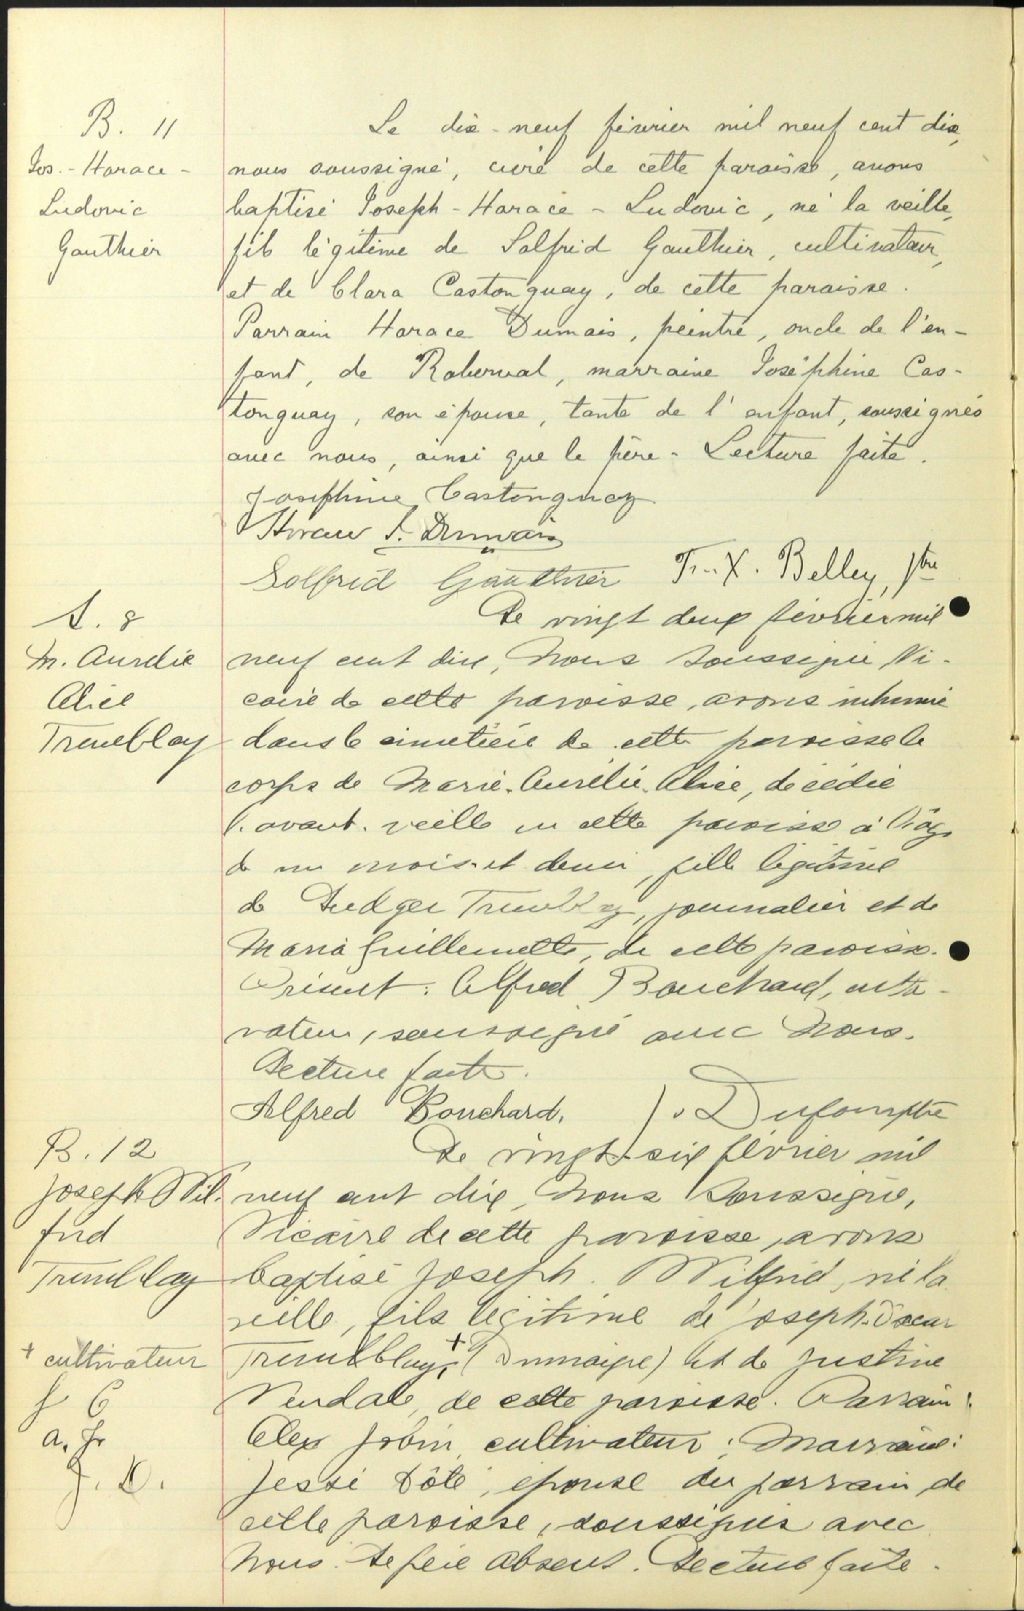 B. 11
Jos. - Horace -
Ludovic
Gauthier
Le dix-neuf février mil neuf cent dix,
nous soussigné, curé de cette paroisse, avons
baptisé Joseph - Horace - Ludovic, né la veille,
fils légitime de Solfrid Gauthier, cultivateur,
et de Clara Castonguay, de cette paroisse.
Parrain Horace Dumais, peintre, oncle de l'en-
fant, de Roberval, marraine Joséphine Cas-
tonguay, son épouse, tante de l'enfant, soussignés
avec nous, ainsi que le père - Lecture faite.
Josephine Castonguay
Horace J. Dumais
Solfrid Gauthier Fr. X. Belley, ptre
S. 8
M. Aurélie
Alice
Tremblay
Le vingt deux février mil
neuf cent dix, Nous soussigné Vi-
caire de cette paroisse, avons inhumé
dans le cimetière de cette paroisse le
corps de Marie-Aurélie-Alice, décédée
l'avant-veille en cette paroisse à l'âge
de un mois et demi, fille légitime
de Tremblay, journalier et de
Maria Guillemette, de cette paroisse.
Présent : Alfred Bouchard, culti-
vateur, soussigné avec Nous.
Lecture faite.
Alfred Bouchard. J. Dufour ptre
B. 12
Joseph Wil-
frid
Tremblay
Le vingt-six février mil
neuf cent dix, Nous Soussigné,
Vicaire de cette paroisse, avons
baptisé Joseph. Wilfrid, né la
veille, fils légitime de Joseph-Oscar
Tremblay,+ (Dumaige) et de Justine
Vendale, de cette paroisse. Parrain:
Alex Jobin, cultivateur; Marraine:
Jessé Côté, épouse du parrain, de
cette paroisse, soussignés avec
Nous. Le père absent. Lecture faite.
+ cultivateur
J C
a. J.
J. D.